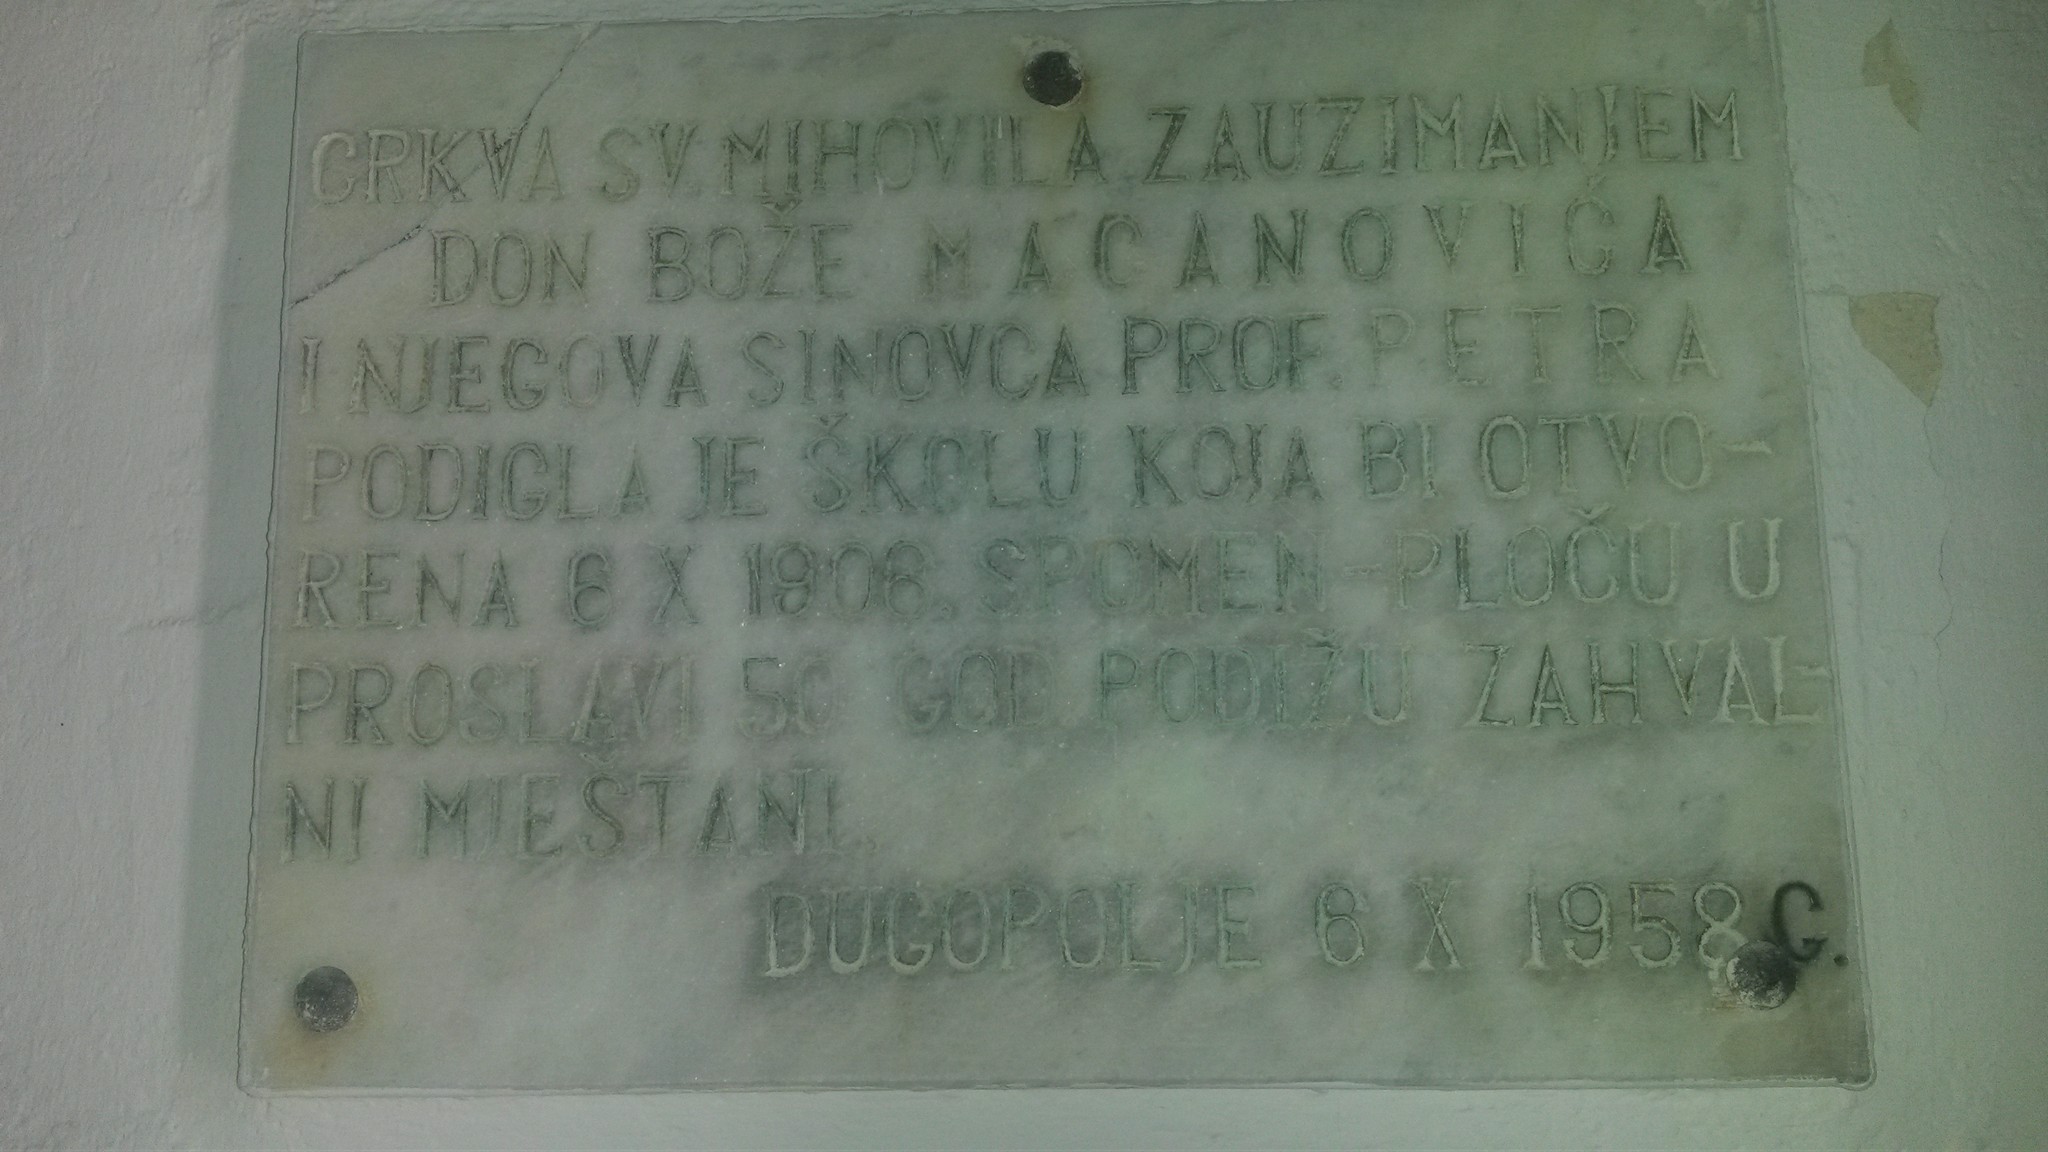 CRKVA SV. MIHOVILA ZAUZIMANJEM
DON BOŽE MACANOVIĆA
I NJEGOVA SINOVCA PROF. PETRA
PODIGLA JE ŠKOLU KOJA BI OTVO-
RENA 6 X 1908. SPOMEN-PLOČU U
PROSLAVI 50 GOD PODIŽU ZAHVAL-
NI MJEŠTANI.
DUGOPOLJE 6 X 1958 G.